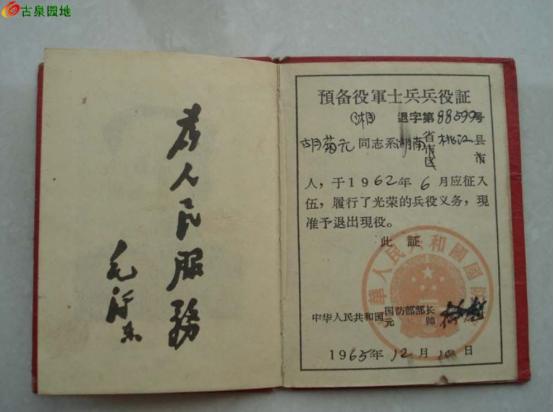 古泉园地
为人民服務
毛泽东
預备役軍士兵兵役証
(湘) 退字第88599号
胡菊元同志系湖南省市区桃江县市
人，于1962年6月应征入
伍，履行了光荣的兵役义务，現
准予退出現役。
此証
中华人民共和國國防部
中华人民共和国国防部部长
元帅
1965年12月10日